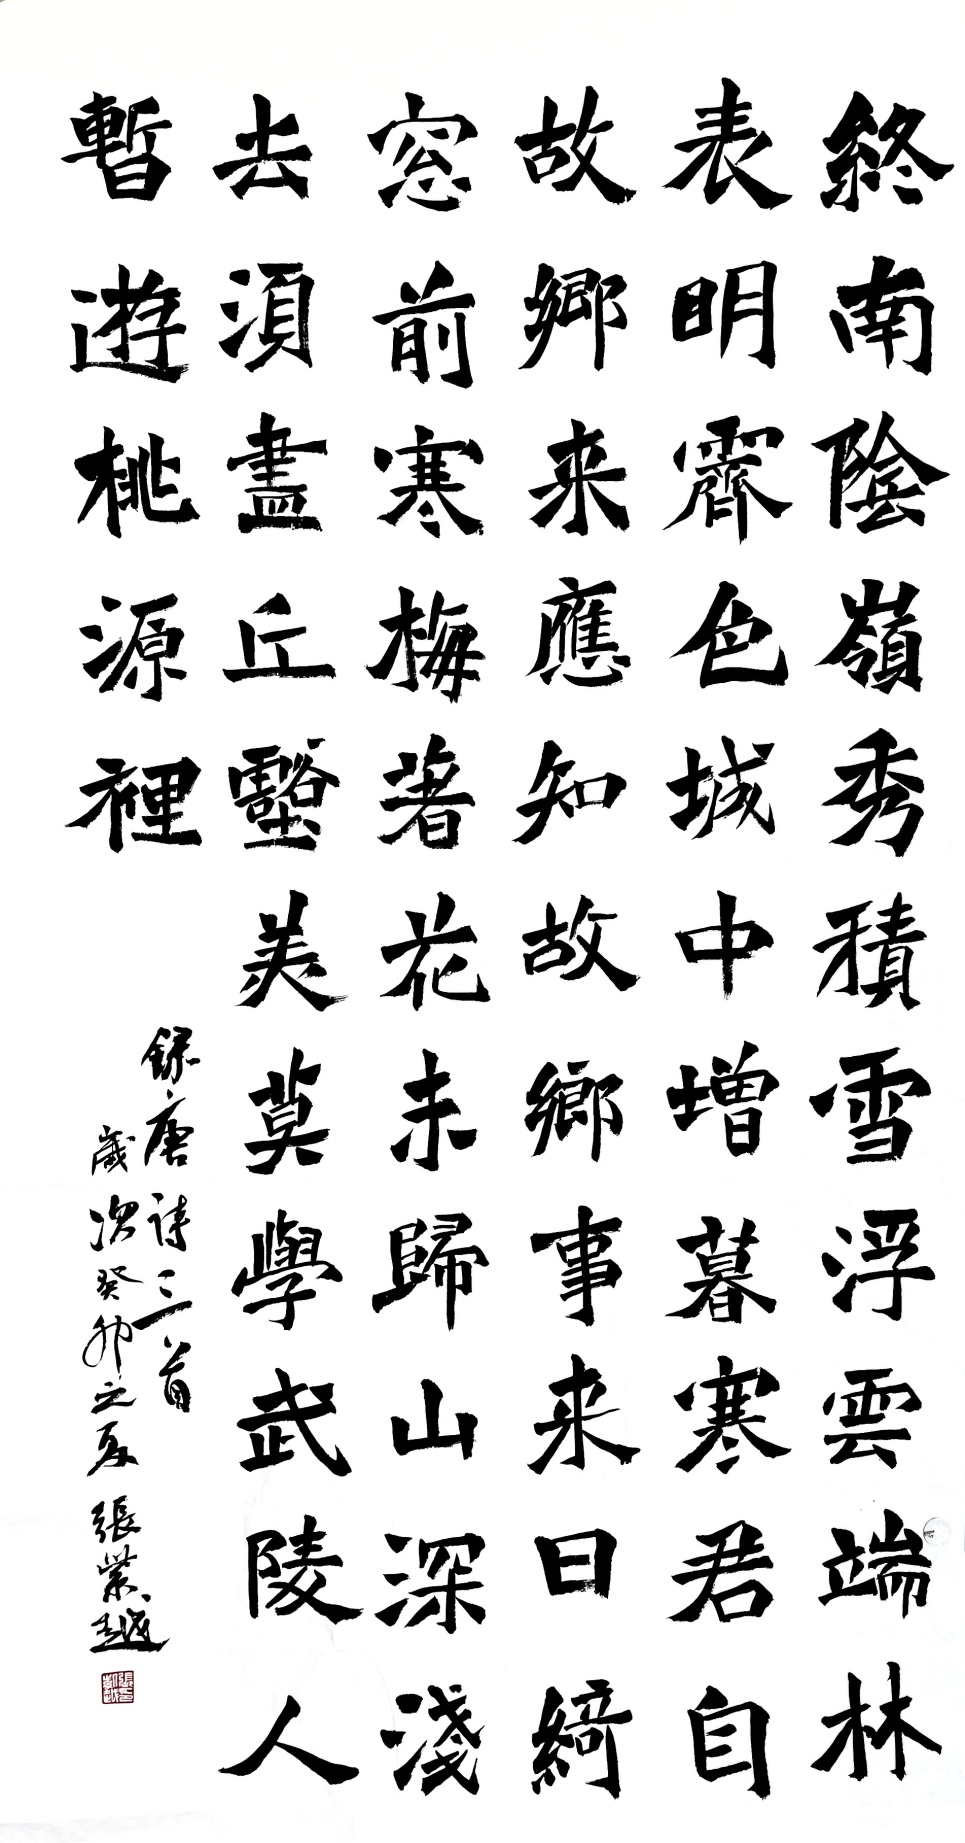 終南陰嶺秀積雪浮雲端林
表明霽色城中增暮寒君自
故鄉来應知故鄉事来日綺
窓前寒梅著花未歸山深淺
去須盡丘壑美莫學武陵人
暫遊桃源裡
録唐詩三首
歲次癸卯之夏張業越